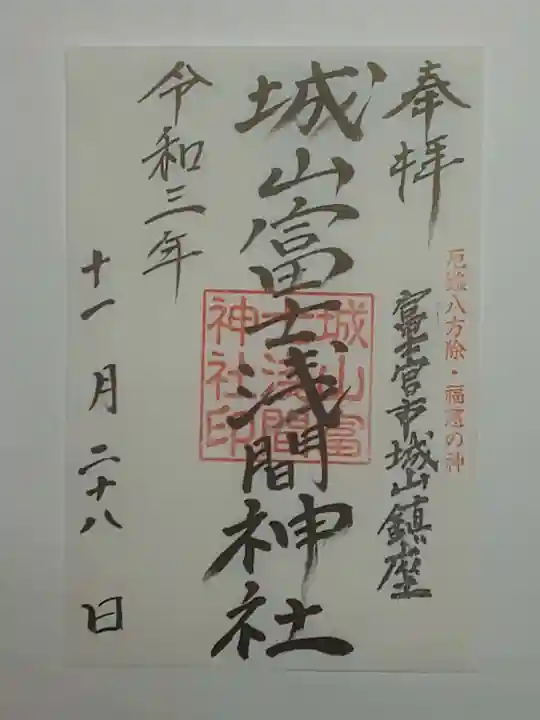 奉拝
厄除八方除・福運の神
富士宮市城山鎮座
城山富士浅間神社
城山富
士浅間
神社印
令和三年
十一月二十八日